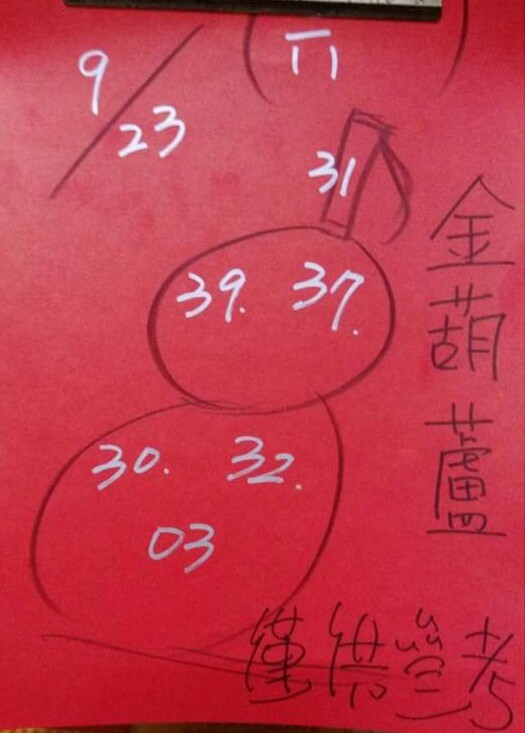 (六)
9/23
31
39. 37.
30. 32.
03
金葫蘆
僅供參考